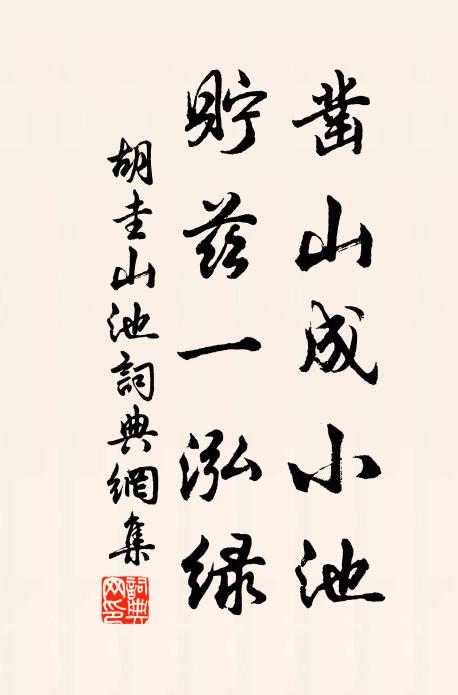 凿山成小池
貯兹一泓緑
胡圭山池詞典網集
詞典网印